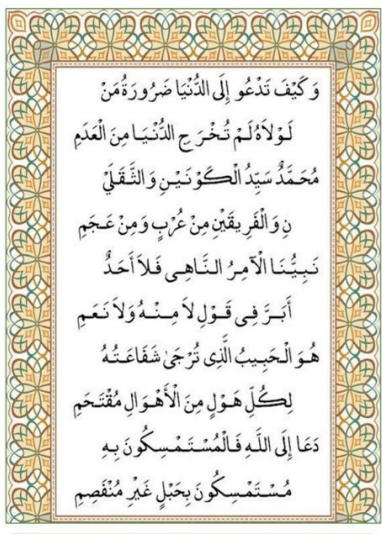 وَكَيْفَ تَدْعُو إِلَى الدُّنْيَا ضَرُورَةُ مَنْ
لَوْلَاهُ لَمْ تُخْرَجِ الدُّنْيَا مِنَ الْعَدَمِ
مُحَمَّدٌ سَيِّدُ الْكَوْنَيْنِ وَالثَّقَلَيْ
نِ وَالْفَرِيقَيْنِ مِنْ عُرْبٍ وَمِنْ عَجَمِ
نَبِيُّنَا الْآمِرُ النَّاهِي فَلَا أَحَدٌ
أَبَرَّ فِي قَوْلِ لَا مِنْهُ وَلَا نَعَمِ
هُوَ الْحَبِيبُ الَّذِي تُرْجَى شَفَاعَتُهُ
لِكُلِّ هَوْلٍ مِنَ الْأَهْوَالِ مُقْتَحَمِ
دَعَا إِلَى اللَّهِ فَالْمُسْتَمْسِكُونَ بِهِ
مُسْتَمْسِكُونَ بِحَبْلٍ غَيْرِ مُنْفَصِمِ